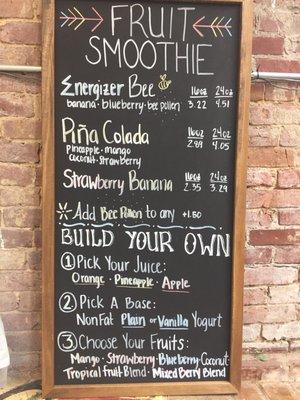 FRUIT
SMOOTHIE
Energizer Bee 16oz 24oz
banana · blueberry · bee pollen 3.22 4.51
Piña Colada 16oz 24oz
pineapple · mango 2.89 4.05
coconut · strawberry
Strawberry Banana 16oz 24oz
2.35 3.29
Add Bee Pollen to any +1.50
BUILD YOUR OWN
1 Pick Your Juice:
Orange · Pineapple · Apple
2 Pick A Base:
NonFat Plain or Vanilla Yogurt
3 Choose Your Fruits:
Mango · Strawberry · Blueberry · Coconut
Tropical fruit Blend · Mixed Berry Blend